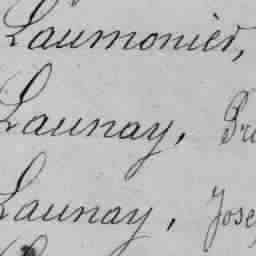 Laumonier,
Launay, Bri
Launay, Jose